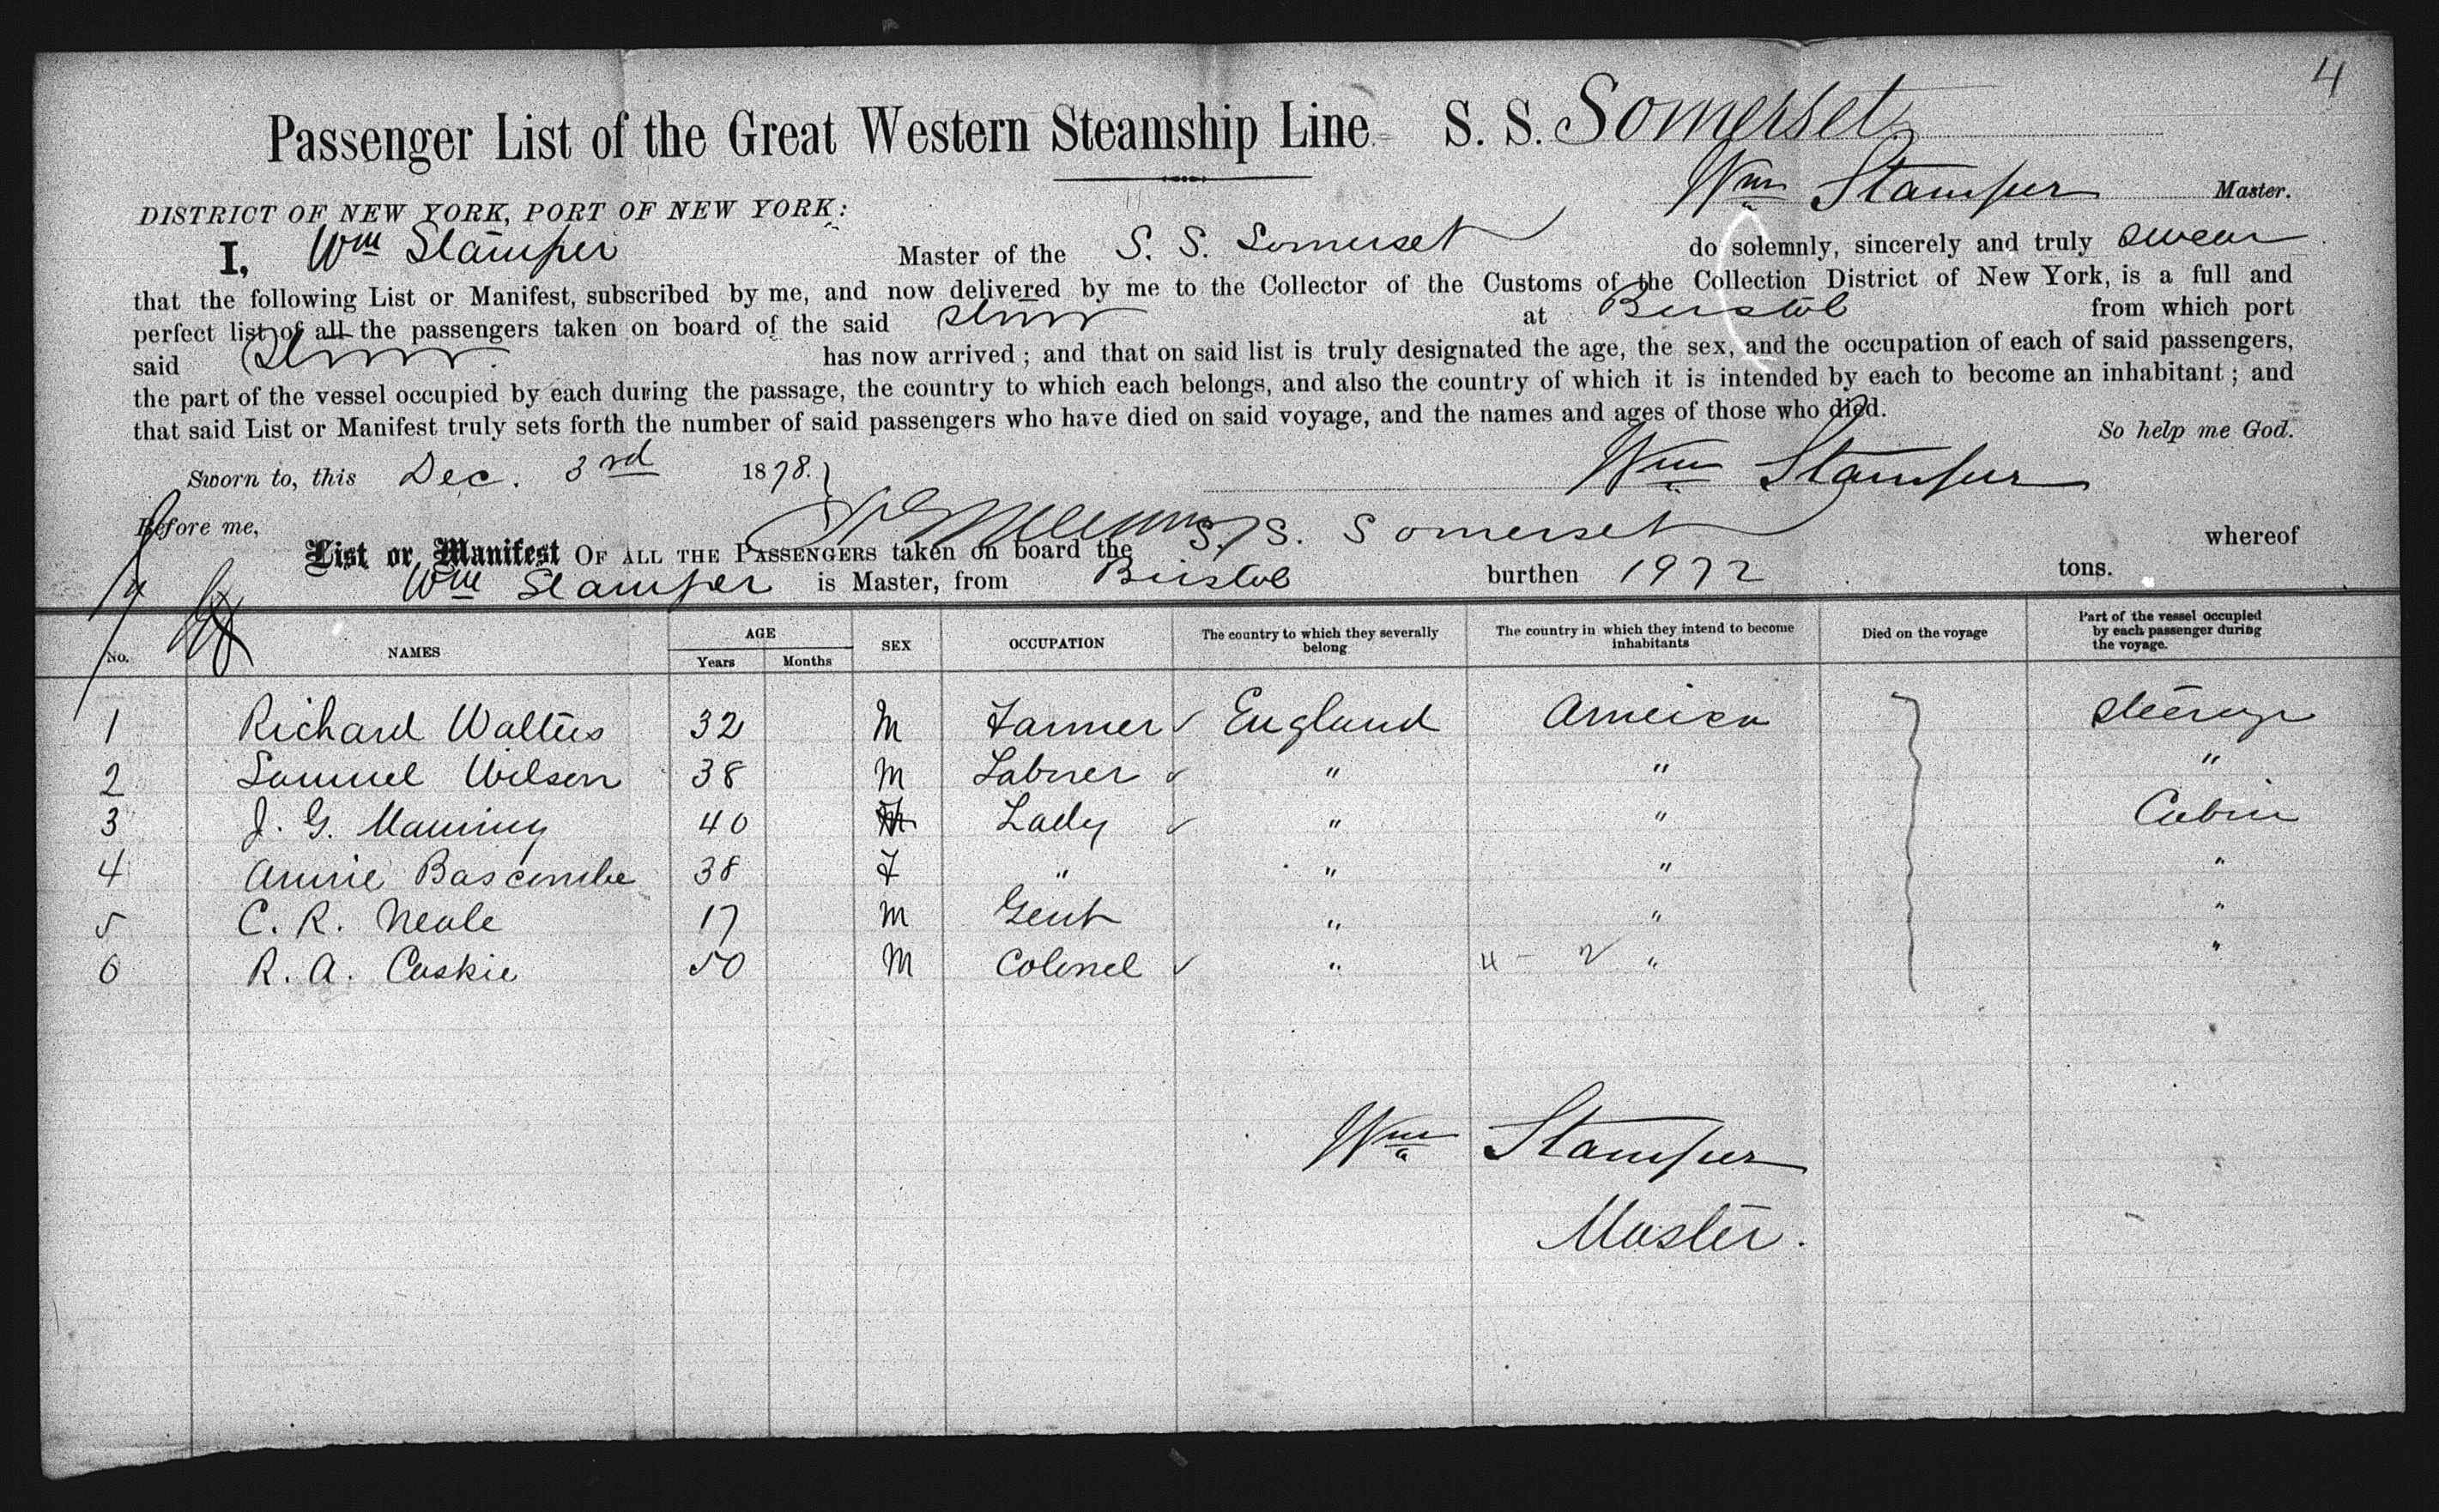 4
Passenger List of the Great Western Steamship Line S. S. Somerset
Wm Stamper Master.
DISTRICT OF NEW YORK, PORT OF NEW YORK:
I, Wm Stamper Master of the S. S. Somerset do solemnly, sincerely and truly swear
that the following List or Manifest, subscribed by me, and now delivered by me to the Collector of the Customs of the Collection District of New York, is a full and
perfect list of all the passengers taken on board of the said Stmr at Bristol from which port
said Stmr has now arrived; and that on said list is truly designated the age, the sex, and the occupation of each of said passengers,
the part of the vessel occupied by each during the passage, the country to which each belongs, and also the country of which it is intended by each to become an inhabitant; and
that said List or Manifest truly sets forth the number of said passengers who have died on said voyage, and the names and ages of those who died.
So help me God.
Sworn to, this Dec. 3rd 1878. Wm Stamper
Before me,
List or Manifest OF ALL THE PASSENGERS taken on board the S. S. Somerset whereof
Wm Stamper is Master, from Bristol burthen 1972 tons.
No. NAMES AGE Years Months SEX OCCUPATION The country to which they severally belong The country in which they intend to become inhabitants Died on the voyage Part of the vessel occupied by each passenger during the voyage.
1 Richard Walters 32 M Farmer ✓ England America Steerage
2 Samuel Wilson 38 M Laborer ✓ " " "
3 J. G. Manning 40 Lady ✓ " " Cabin
4 Annie Bascombe 38 F " " " "
5 C. R. Neale 17 M Gent " " "
6 R. A. Caskie 50 M Colonel ✓ " " "
Wm Stamper
Master.